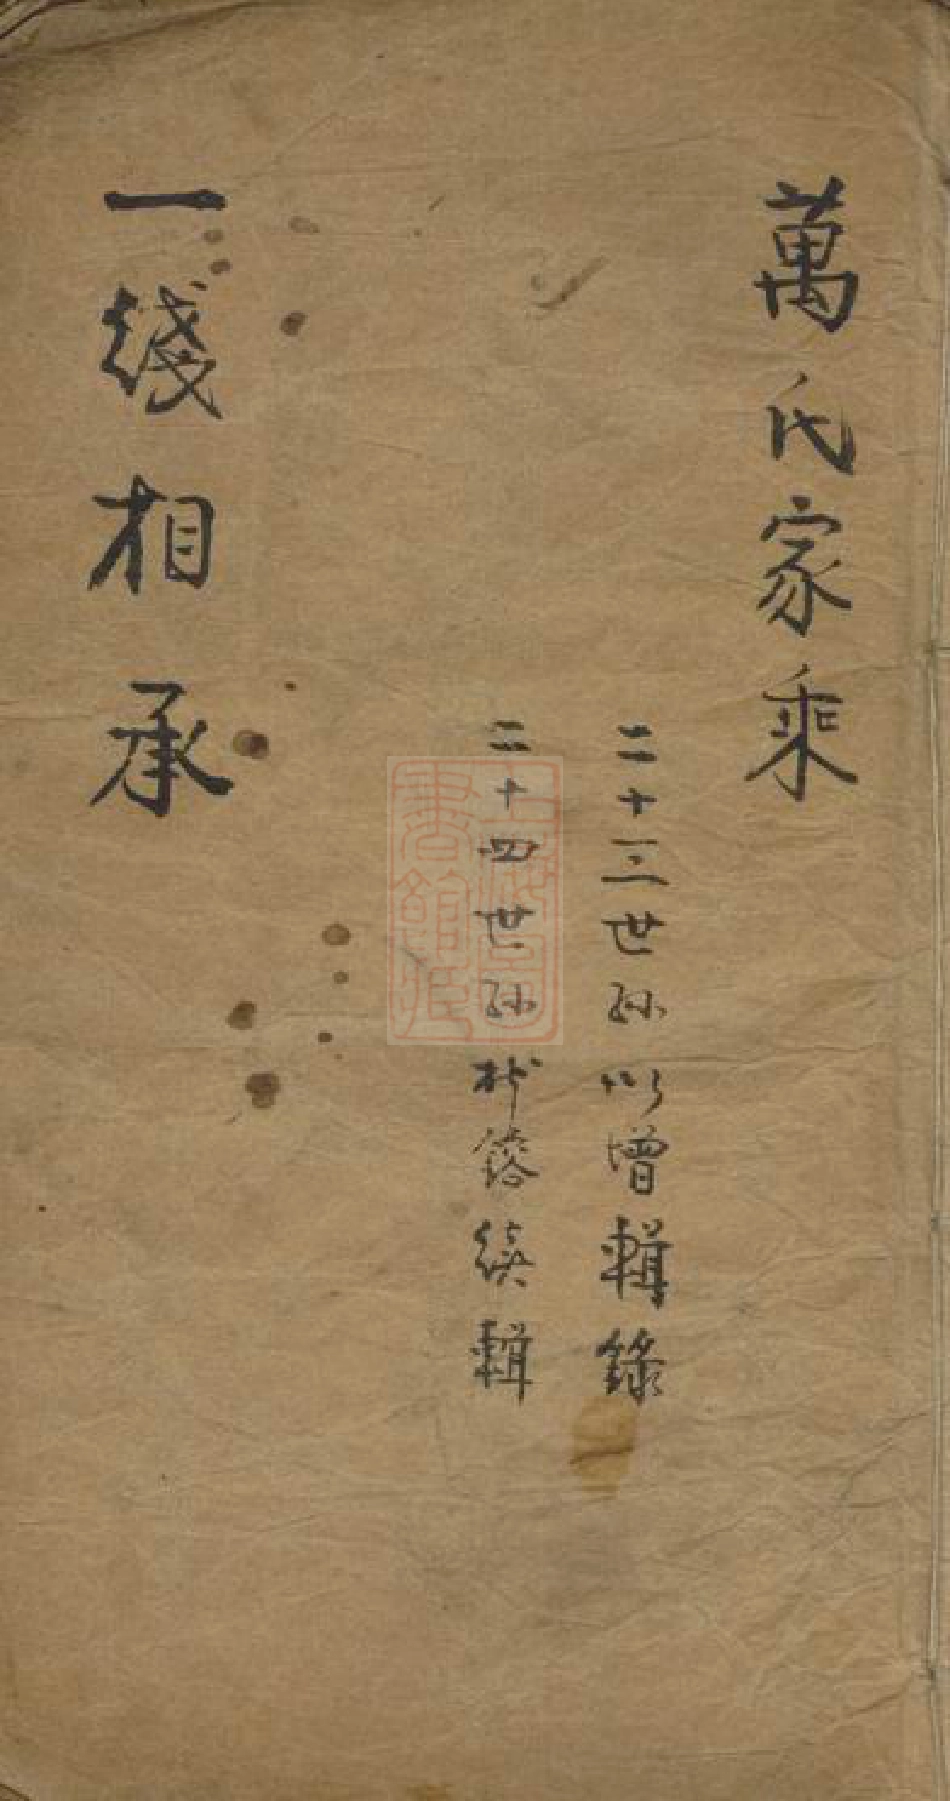 萬氏家乘
二十三世孙以增輯錄
二十四世孙
續輯
一綫相承
上海圖書館藏